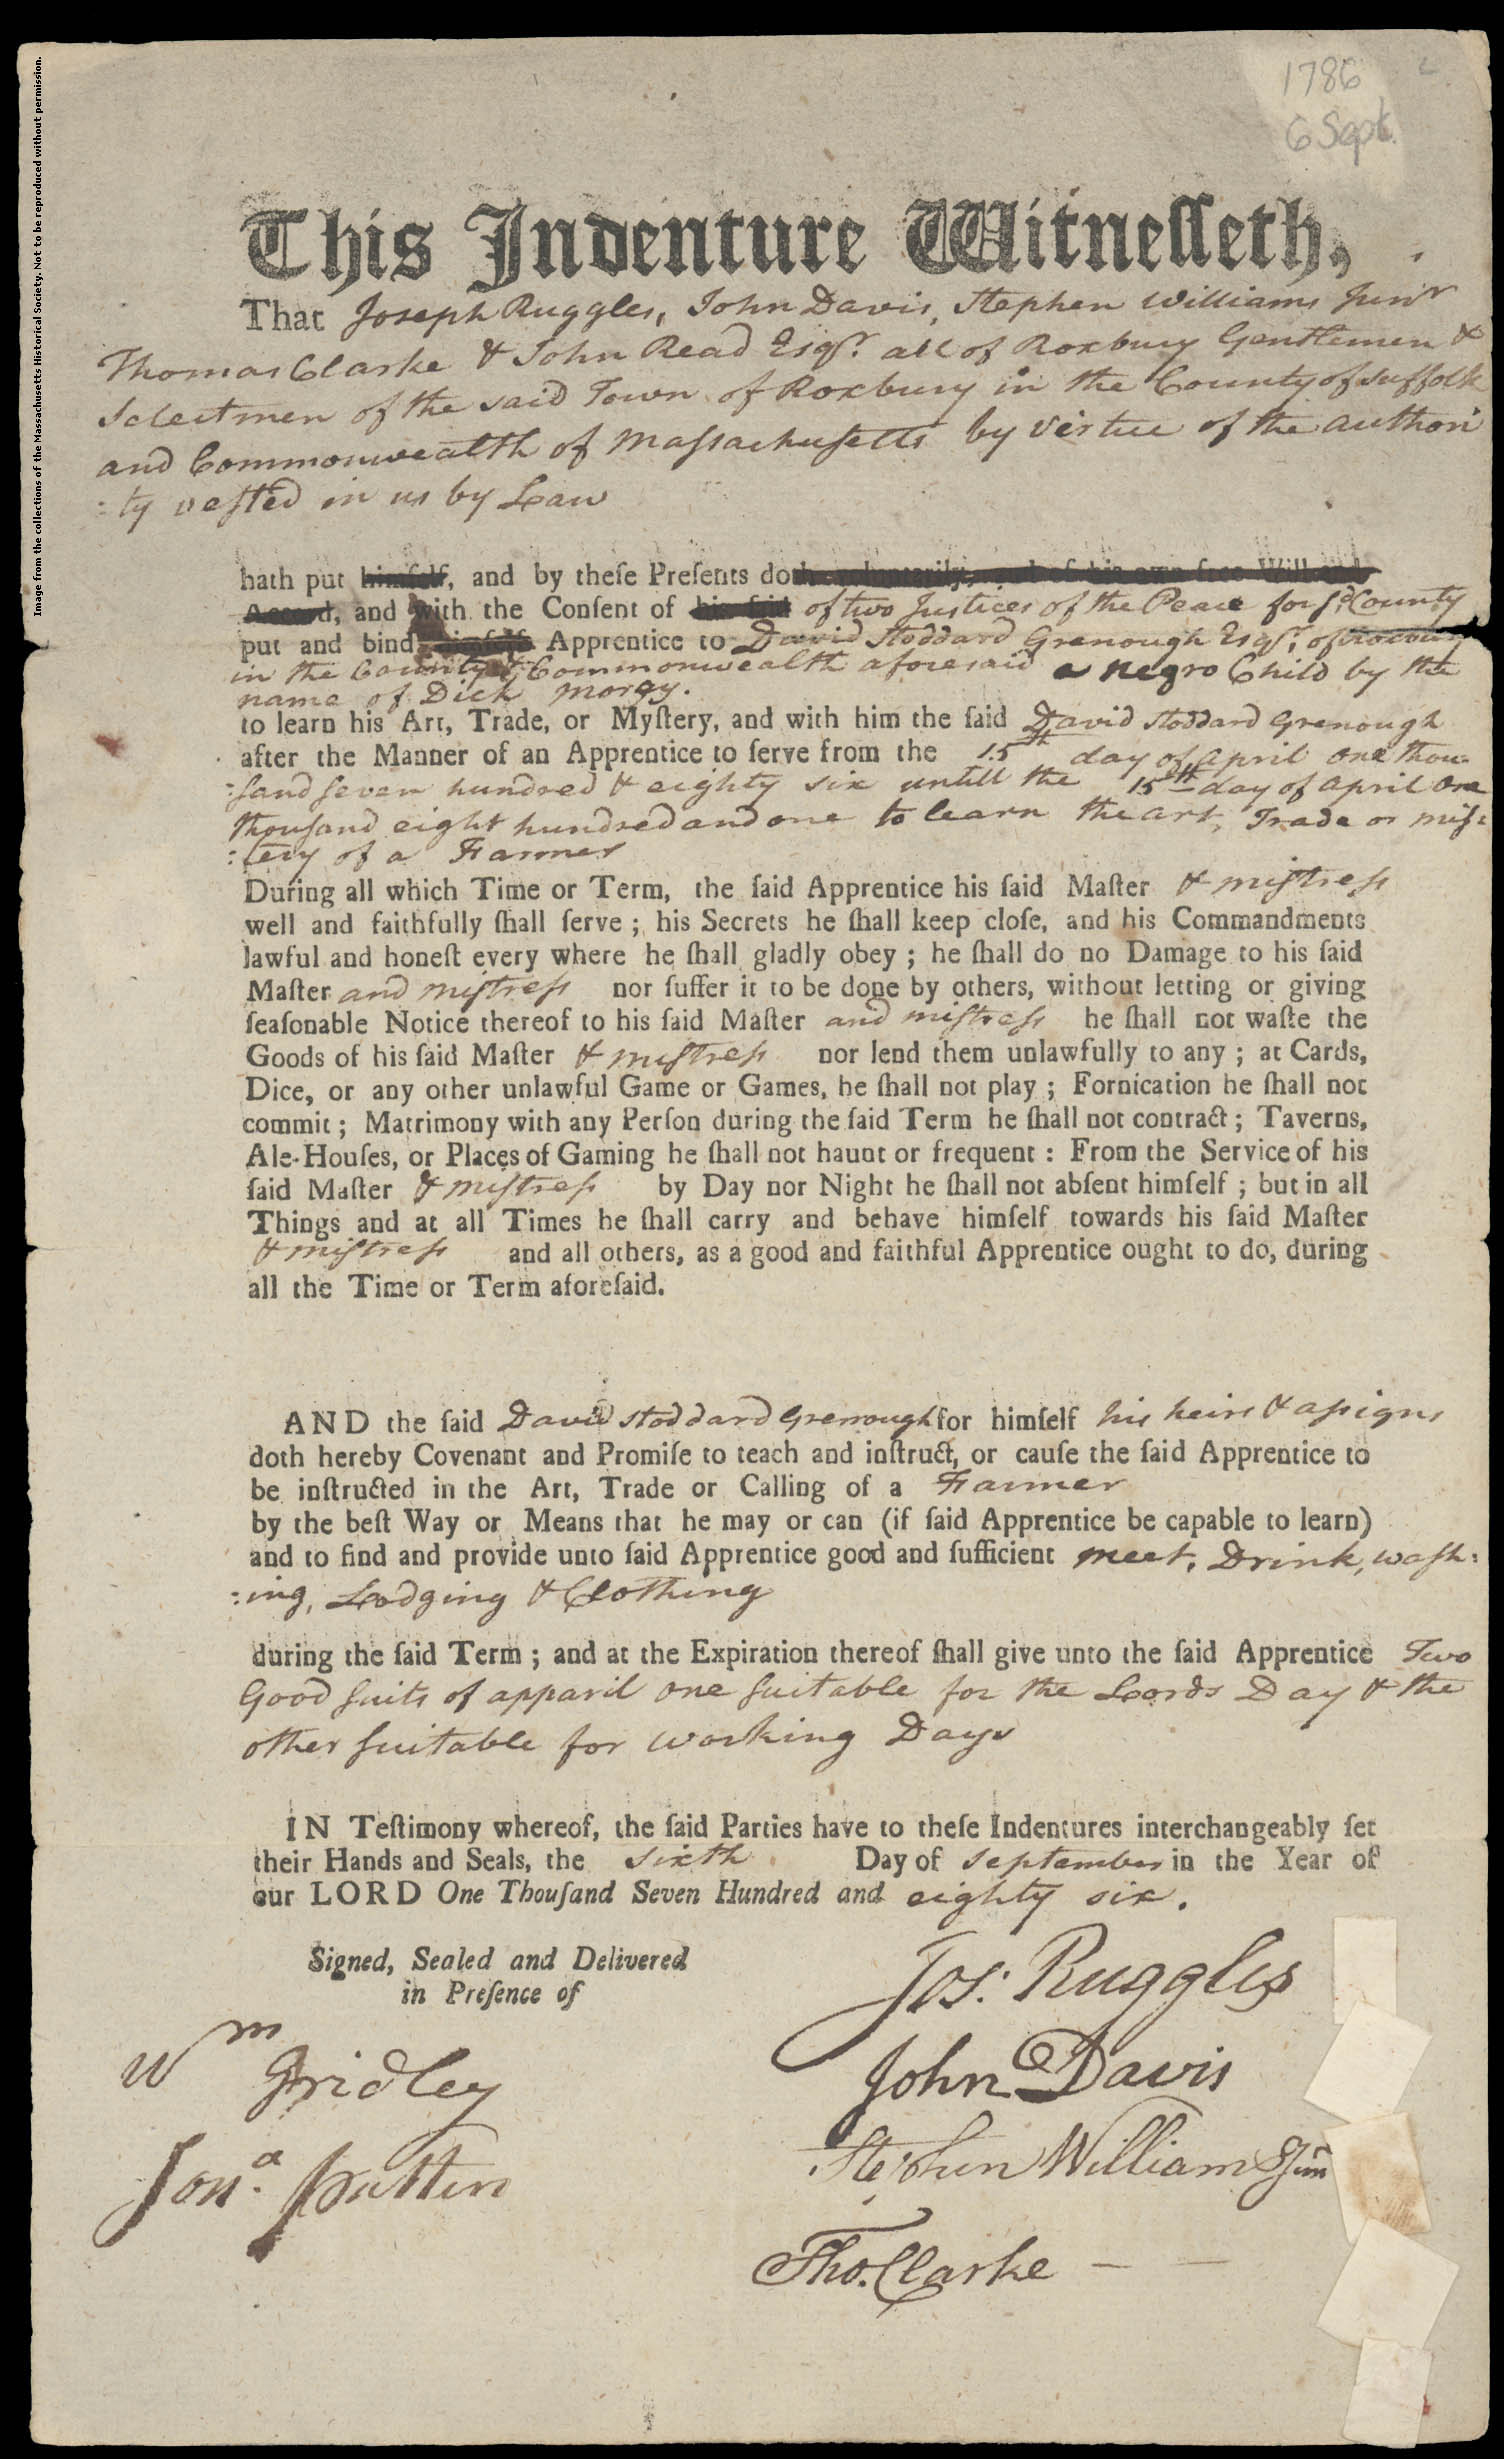 Image from the collections of the Massachusetts Historical Society. Not to be reproduced without permission.
1786
6 Sept.
This Indenture Witneſſeth,
That Joseph Ruggles, John Davis, Stephen Williams Junr
Thomas Clarke & John Read Esqr. all of Roxbury Gentlemen &
Selectmen of the said Town of Roxbury in the County of Suffolk
and Commonwealth of Maſsachuſetts by virtue of the authori
:ty veſted in us by Law
hath put himſelf, and by theſe Preſents doth voluntarily, and of his own free Will and
Accord, and with the Conſent of his ſaid of two Juſtices of the Peace for ſd. County
put and bind himſelf Apprentice to David Stoddard Grenough Esqr. of Roxbury
in the County & Commonwealth aforesaid a negro Child by the
name of Dick Morgy.
to learn his Art, Trade, or Myſtery, and with him the ſaid David Stoddard Grenough
after the Manner of an Apprentice to ſerve from the 15th day of April one thou:
:ſand ſeven hundred & eighty six untill the 15th day of April one
thouſand eight hundred and one to learn the art, Trade or miſ:
:tery of a Farmer
During all which Time or Term, the ſaid Apprentice his ſaid Maſter & miſtreſs
well and faithfully ſhall ſerve; his Secrets he ſhall keep cloſe, and his Commandments
lawful and honeſt every where he ſhall gladly obey; he ſhall do no Damage to his ſaid
Maſter and miſtreſs nor ſuffer it to be done by others, without letting or giving
ſeaſonable Notice thereof to his ſaid Maſter and miſtreſs he ſhall not waſte the
Goods of his ſaid Maſter & miſtreſs nor lend them unlawfully to any; at Cards,
Dice, or any other unlawful Game or Games, he ſhall not play; Fornication he ſhall not
commit; Matrimony with any Perſon during the ſaid Term he ſhall not contract; Taverns,
Ale-Houſes, or Places of Gaming he ſhall not haunt or frequent: From the Service of his
ſaid Maſter & miſtreſs by Day nor Night he ſhall not abſent himſelf; but in all
Things and at all Times he ſhall carry and behave himſelf towards his ſaid Maſter
& miſtreſs and all others, as a good and faithful Apprentice ought to do, during
all the Time or Term aforeſaid.
AND the ſaid David Stoddard Grenough for himſelf his heirs & aſsigns
doth hereby Covenant and Promiſe to teach and inſtruct, or cauſe the ſaid Apprentice to
be inſtructed in the Art, Trade or Calling of a Farmer
by the beſt Way or Means that he may or can (if ſaid Apprentice be capable to learn)
and to find and provide unto ſaid Apprentice good and ſufficient meet, Drink, waſh:
:ing, Lodging & Clothing
during the ſaid Term; and at the Expiration thereof ſhall give unto the ſaid Apprentice Two
Good ſuits of apparil one ſuitable for the Lords Day & the
other ſuitable for working Days
IN Teſtimony whereof, the ſaid Parties have to theſe Indentures interchangeably ſet
their Hands and Seals, the sixth Day of September in the Year of
our LORD One Thouſand Seven Hundred and eighty six.
Signed, Sealed and Delivered
in Preſence of
Wm Gridley
Jona. Patten
Jos: Ruggles
John Davis
Stephen Williams Jun
Tho. Clarke